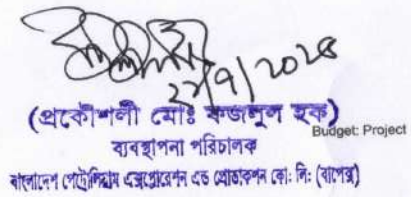 ২৮/৭/২০২৫
(প্রকৌশলী মোঃ ফজলুল হক)
Budget: Project
ব্যবস্থাপনা পরিচালক
বাংলাদেশ পেট্রোলিয়াম এক্সপ্লোরেশন এন্ড প্রোডাকশন কোং লিঃ (বাপেক্স)